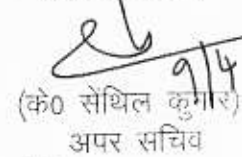 9/4
(के0 सेंथिल कुमार)
अपर सचिव